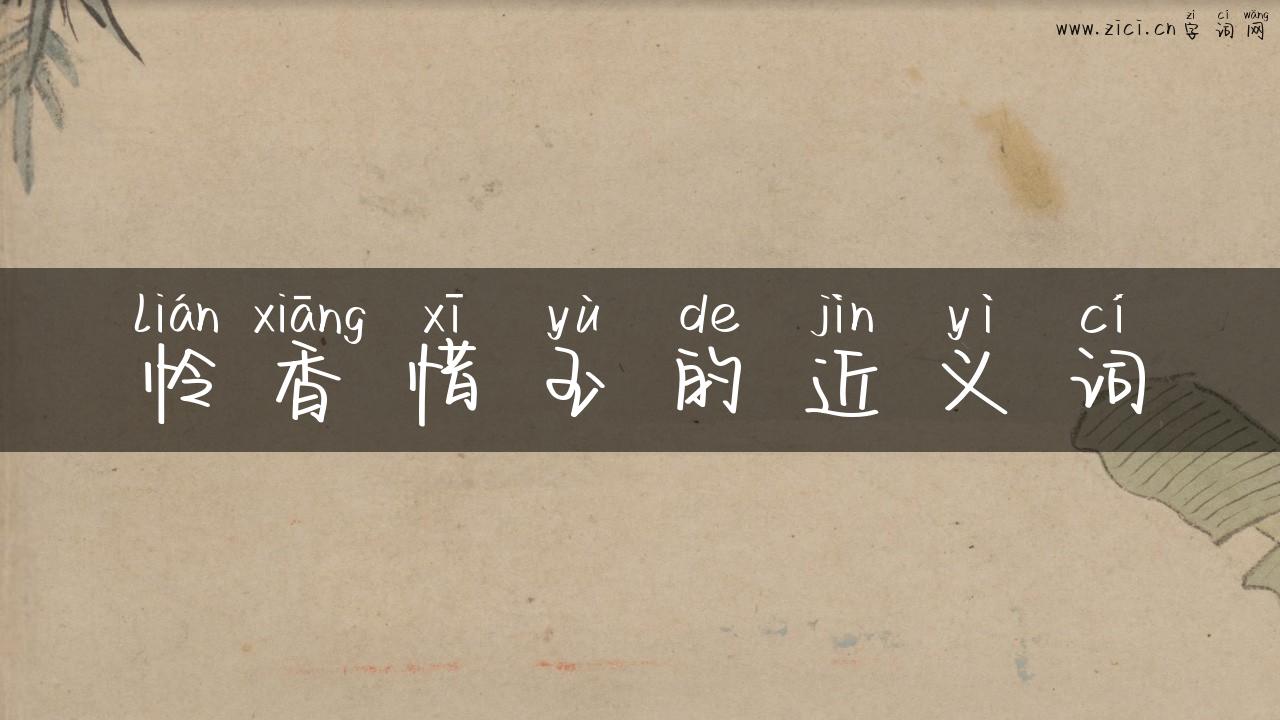 zì cí wǎng
www.zici.cn 字词网
lián xiāng xī yù de jìn yì cí
怜香惜玉的近义词